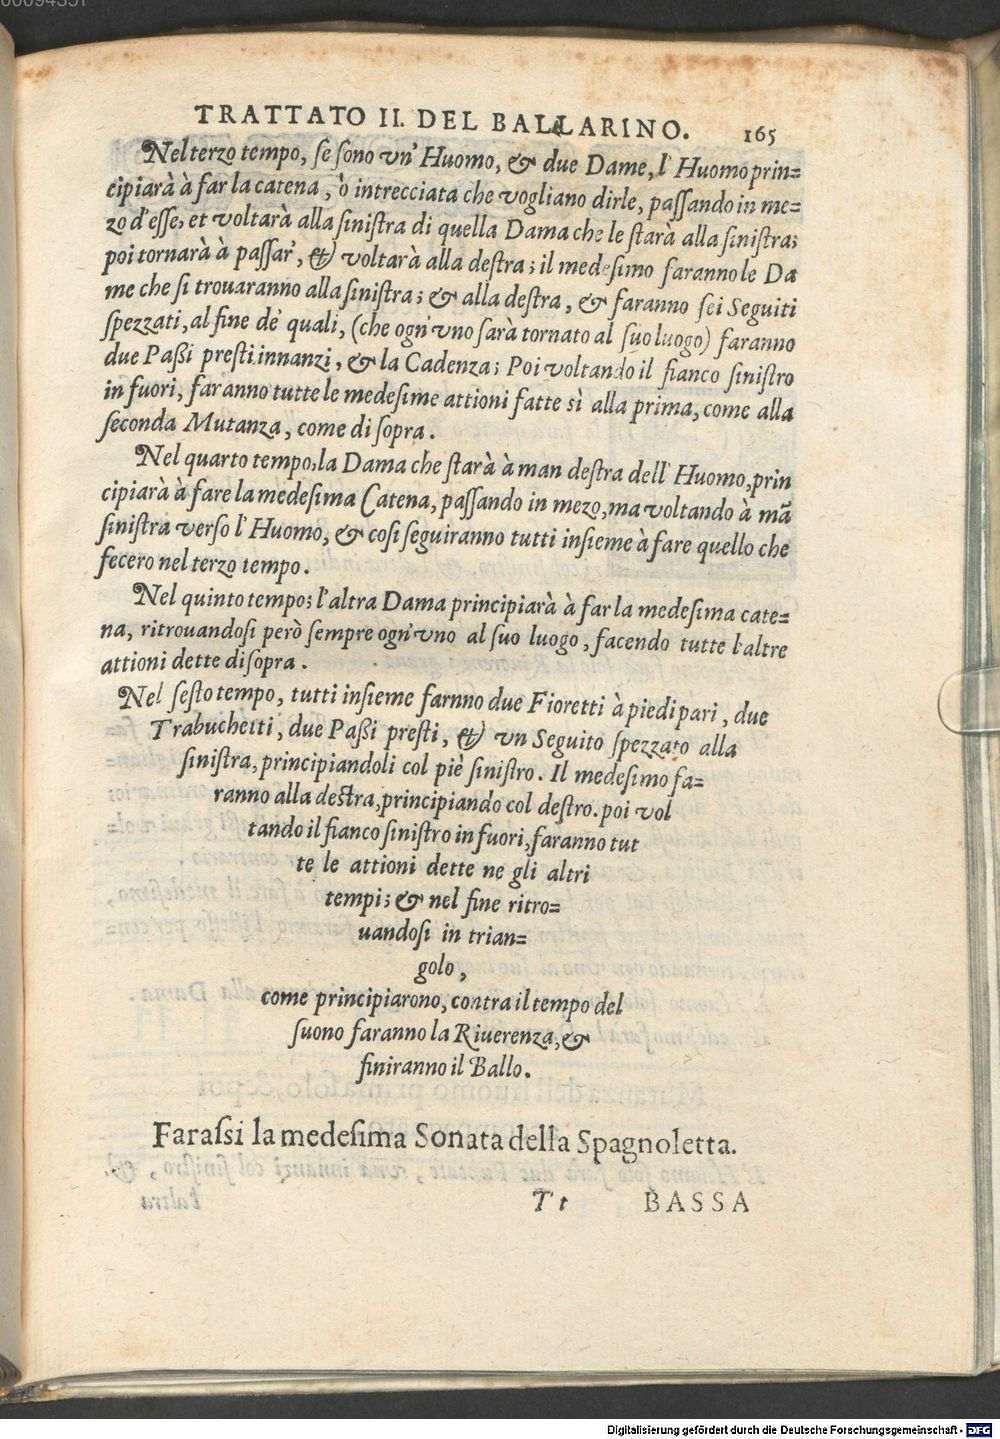 TRATTATO II. DEL BALLARINO. 165
Nel terzo tempo, se sono vn' Huomo, & due Dame, l' Huomo prin=
cipiarà à far la catena, ò intrecciata che vogliano dirle, passando in me=
zo d'esse, et voltarà alla sinistra di quella Dama che le starà alla sinistra;
poi tornarà à passar', et voltarà alla destra; il medesimo faranno le Da
me che si trouaranno alla sinistra; & alla destra, & faranno sei Seguiti
spezzati, al fine de' quali, (che ogn'vno sarà tornato al suo luogo) faranno
due Paßi presti innanzi, & la Cadenza; Poi voltando il fianco sinistro
in fuori, faranno tutte le medesime attioni fatte sì alla prima, come alla
seconda Mutanza, come di sopra.
Nel quarto tempo, la Dama che starà à man destra dell' Huomo, prin
cipiarà à fare la medesima Catena, passando in mezo, ma voltando à mã
sinistra verso l' Huomo, & cosi seguiranno tutti insieme à fare quello che
fecero nel terzo tempo.
Nel quinto tempo; l'altra Dama principiarà à far la medesima cate=
na, ritrouandosi però sempre ogn'vno al suo luogo, facendo tutte l'altre
attioni dette di sopra.
Nel sesto tempo, tutti insieme farnno due Fioretti à piedi pari, due
Trabuchetti, due Paßi presti, et vn Seguito spezzato alla
sinistra, principiandoli col piè sinistro. Il medesimo fa=
ranno alla destra, principiando col destro. poi vol
tando il fianco sinistro in fuori, faranno tut
te le attioni dette ne gli altri
tempi; & nel fine ritro=
uandosi in trian=
golo,
come principiarono, contra il tempo del
suono faranno la Riuerenza, &
finiranno il Ballo.
Farassi la medesima Sonata della Spagnoletta.
T t BASSA
Digitalisierung gefördert durch die Deutsche Forschungsgemeinschaft - DFG